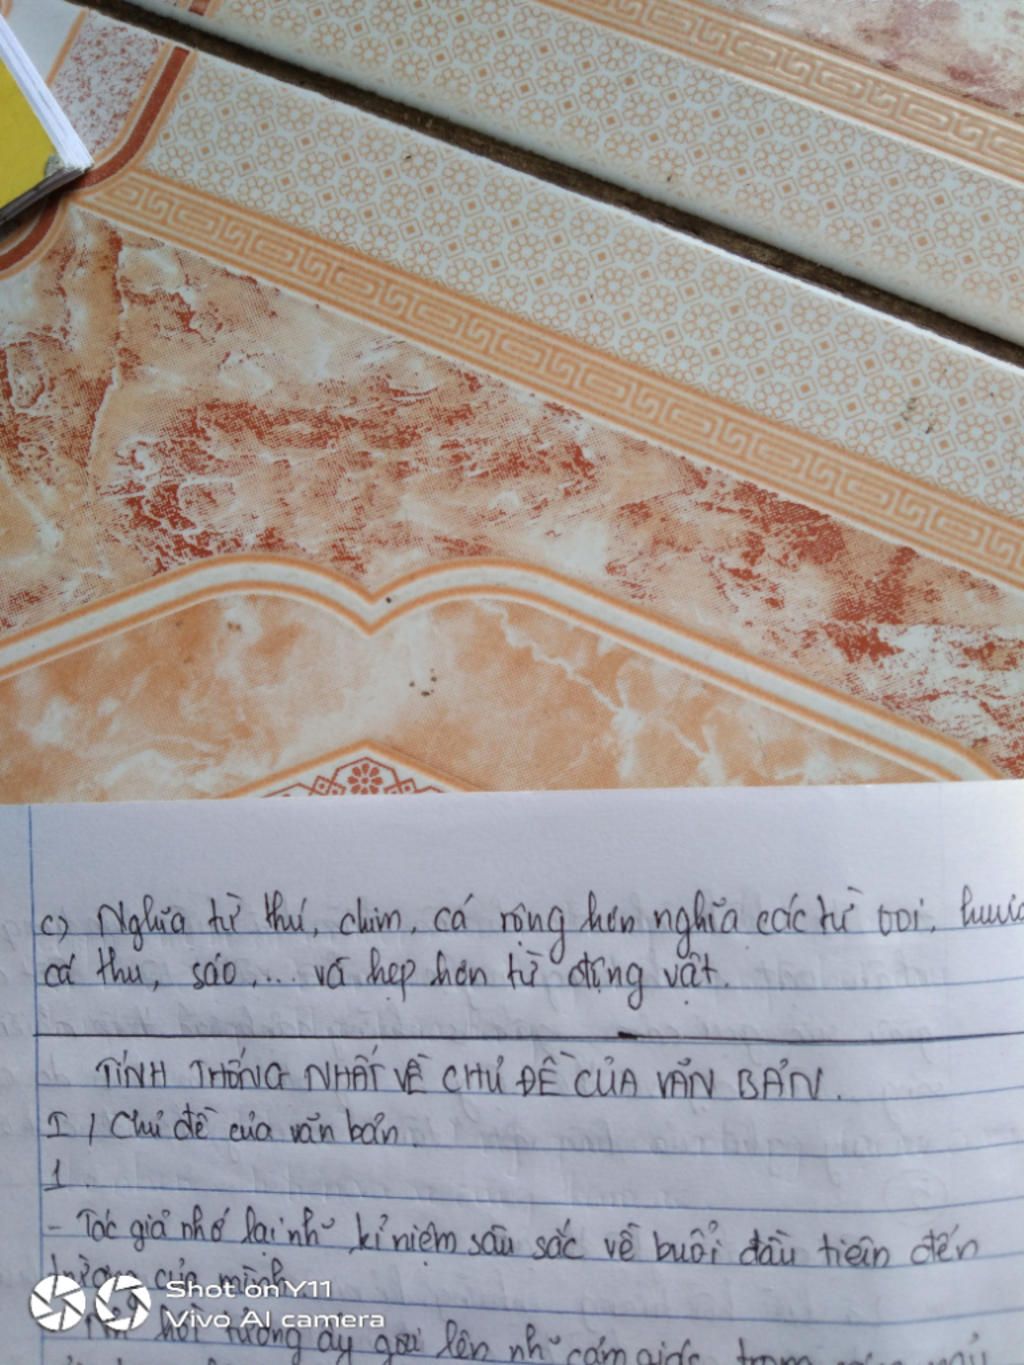 c) Nghĩa từ thú, chim, cá rộng hơn nghĩa các từ voi, hươu
cá thu, sáo,... và hẹp hơn từ động vật.
TÍNH THỐNG NHẤT VỀ CHỦ ĐỀ CỦA VĂN BẢN.
I / Chủ đề của văn bản.
1
- Tác giả nhớ lại nh~ kỉ niệm sâu sắc về buổi đầu tiên đến
trường của mình
hồi tưởng ấy gợi lên nh~ cảm giác trong
Shot on Y11
Vivo AI camera